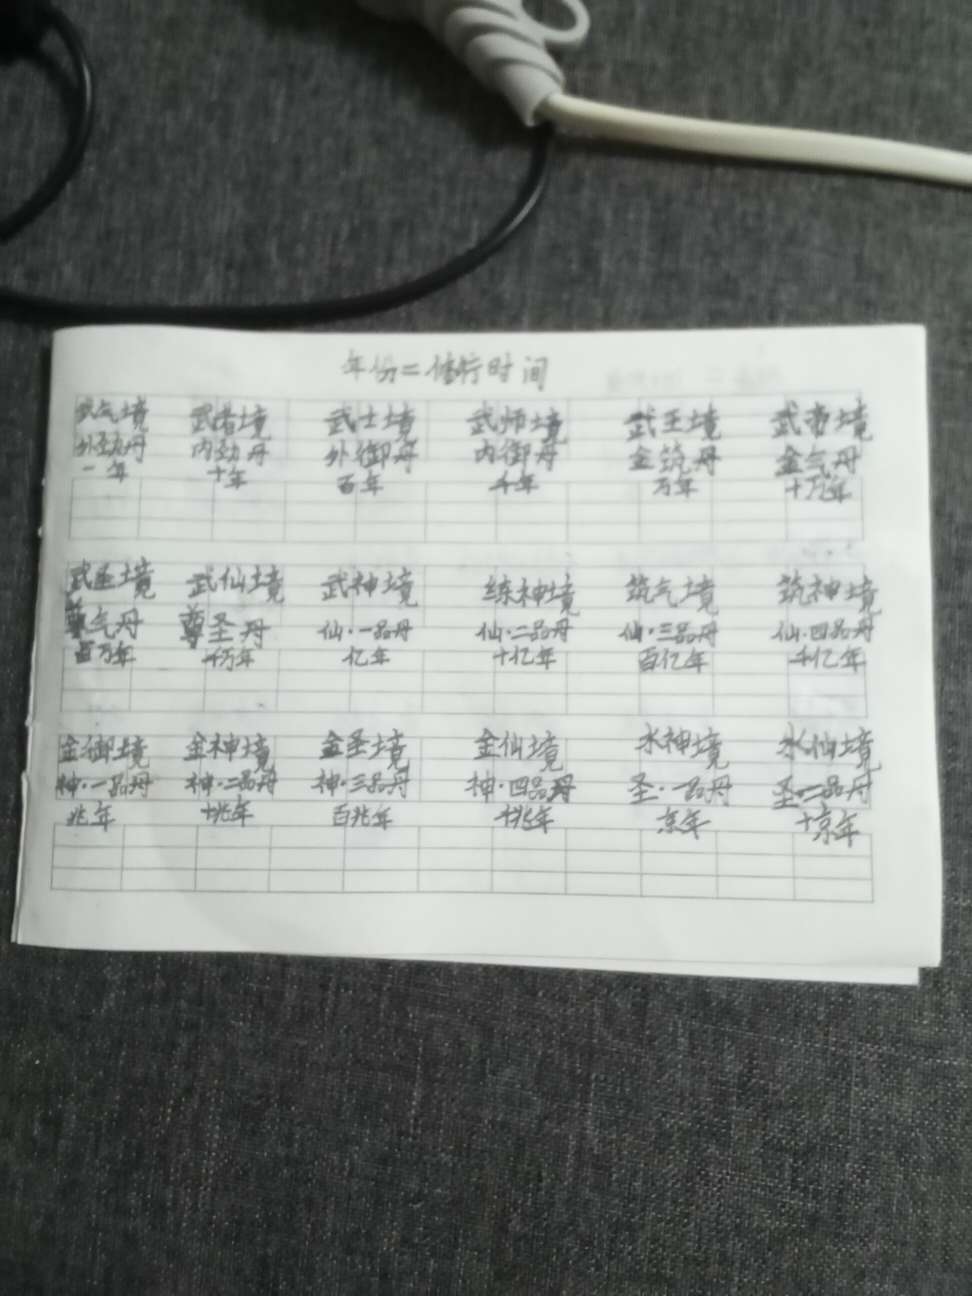 年份=修行时间
武气境 武者境 武士境 武师境 武王境 武帝境
外劲丹 内劲丹 外御丹 内御丹 金筑丹 金气丹
一年 十年 百年 千年 万年 十万年
武圣境 武仙境 武神境 练神境 筑气境 筑神境
尊气丹 尊圣丹 仙·一品丹 仙·二品丹 仙·三品丹 仙·四品丹
百万年 千万年 亿年 十亿年 百亿年 千亿年
金御境 金神境 金圣境 金仙境 水神境 水仙境
神·一品丹 神·二品丹 神·三品丹 神·四品丹 圣·一品丹 圣·二品丹
兆年 十兆年 百兆年 千兆年 京年 十京年